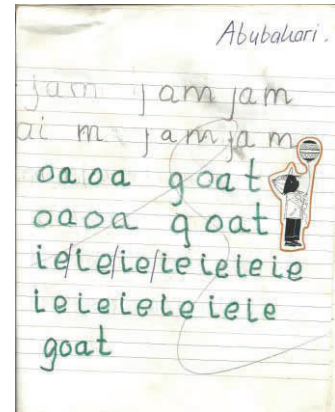 Abubakari.
jam jam jam
ai m jam jam
oaoa goat
oaoa goat
ie/ie/ie/ieieieie
ieieieieieie
goat